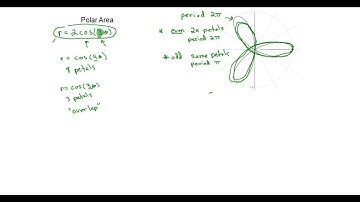 Polar Area
r = 2 cos(3θ)
r = cos(4θ)
8 petals
r = cos(3θ)
3 petals
"overlap"
period 2π
* even 2x petals
period 2π
* odd same petals
period π